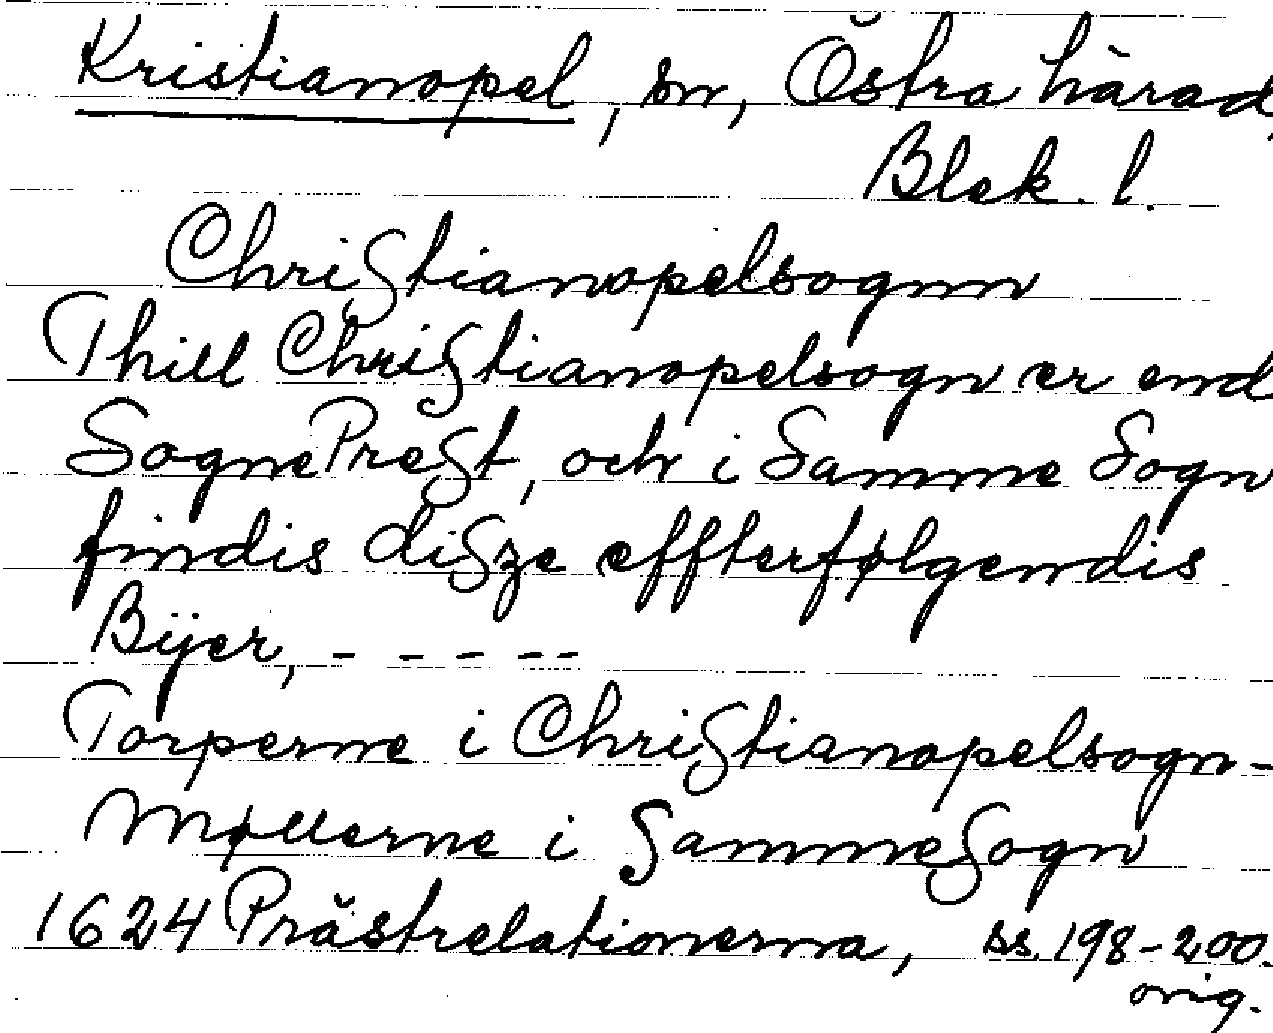 Kristianopel, sn, Östra härad,
Blek. l.
Christianopelsognn
Thill Christianopelsogn er end
SognePrest, och i Samme Sogn
findis disze effterfølgendis
Bÿer, - - - - -
Torperne i Christianopelsogn-
Møllerne i SammeSogn
1624 Prästrelationerna, ss. 198-200.
orig.